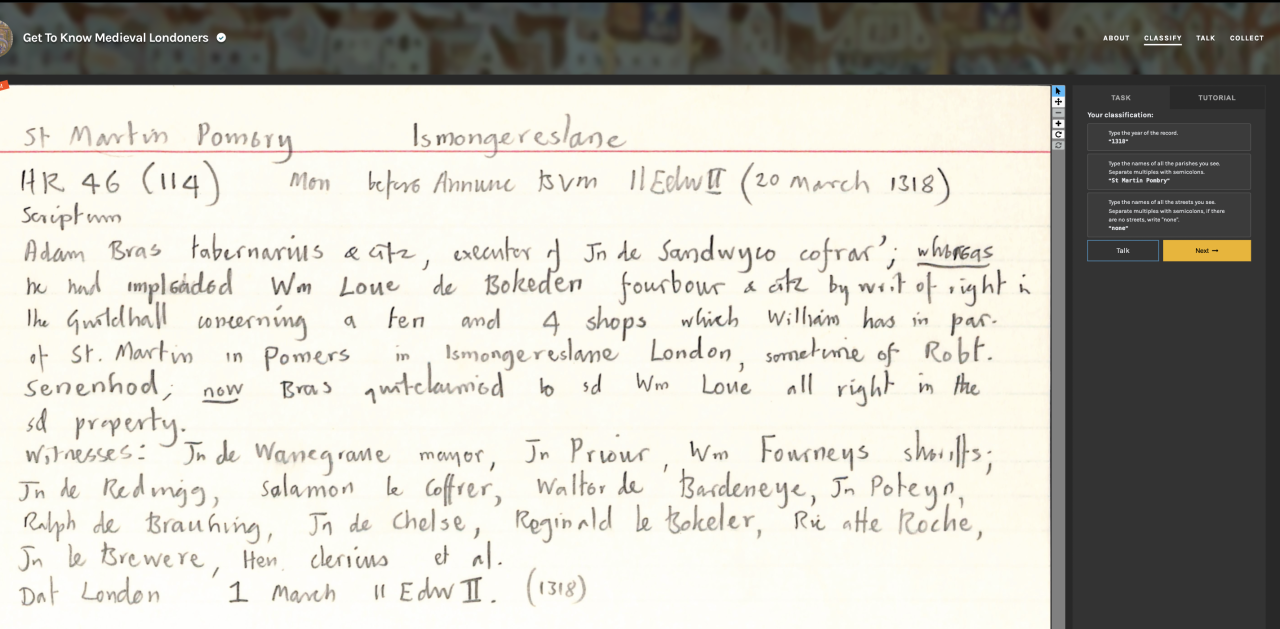 Get To Know Medieval Londoners
ABOUT CLASSIFY TALK COLLECT
St Martin Pomery Ismongereslane
HR 46 (114) Mon before Annunc BVM 11 Edw II (20 March 1318)
Scriptum
Adam Bras tabernarius & citz, executor of Jn de Sandwyco cofrar'; whereas
he had impleaded Wm Loue de Bokeden fourbour & citz by writ of right in
the Guildhall concerning a ten and 4 shops which William has in par.
of St. Martin in Pomers in Ismongereslane London, sometime of Robt.
Senenhod; now Bras quitclaimed to sd Wm Loue all right in the
sd property.
Witnesses: Jn de Wanegraue mayor, Jn Priour, Wm Fourneys sheriffs;
Jn de Redingg, Salamon le Coffrer, Walter de Bardeneye, Jn Poteyn,
Ralph de Brauhing, Jn de Chelse, Reginald le Bokeler, Ric atte Roche,
Jn le Brewere, Hen. clericus et al.
Dat London 1 March 11 Edw II. (1318)
TASK TUTORIAL
Your classification:
Type the year of the record.
"1318"
Type the names of all the parishes you see.
Separate multiples with semicolons.
"St Martin Pombry"
Type the names of all the streets you see.
Separate multiples with semicolons, if there
are no streets, write "none".
"none"
Talk Next →